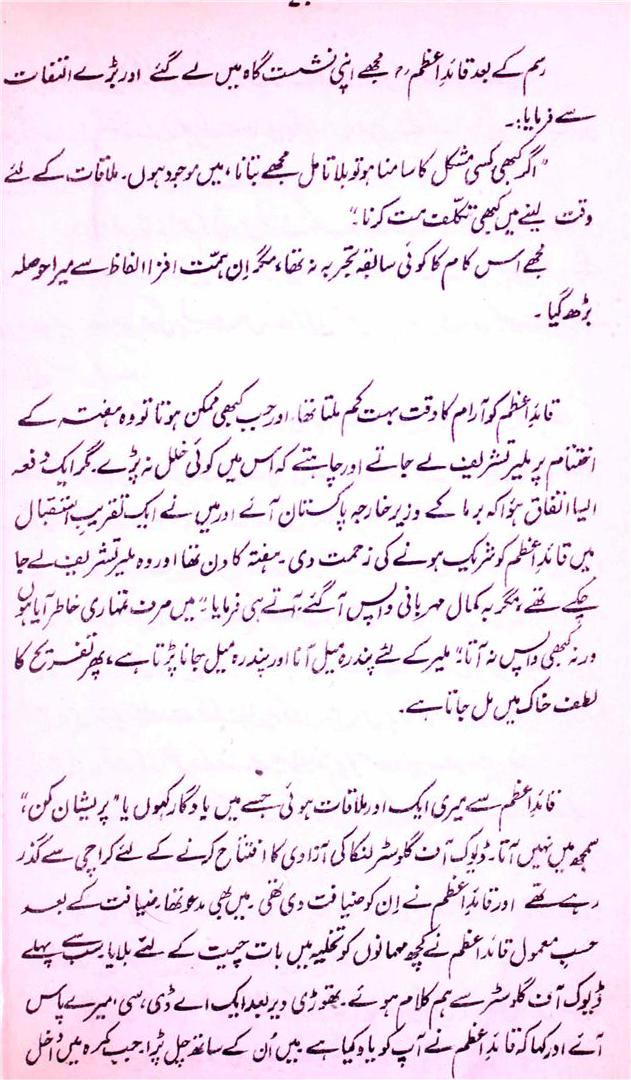 رسم کے بعد قائدِ اعظمؒ مجھے اپنی نشست گاہ میں لے گئے اور بڑے التفات
سے فرمایا:۔
"اگر کبھی کسی مشکل کا سامنا ہو تو بلا تامل مجھے بتانا، میں موجود ہوں۔ ملاقات کے لئے
وقت لینے میں کبھی تکلّف مت کرنا۔"
مجھے اس کام کا کوئی سابقہ تجربہ نہ تھا، مگر اِن ہمّت افزا الفاظ سے میرا حوصلہ
بڑھ گیا۔
قائدِ اعظم کو آرام کا وقت بہت کم ملتا تھا، اور جب کبھی ممکن ہوتا تو وہ ہفتہ کے
اختتام پر ملیر تشریف لے جاتے اور چاہتے کہ اُس میں کوئی خلل نہ پڑے۔ مگر ایک دفعہ
ایسا اتفاق ہوُا کہ برما کے وزیرِ خارجہ پاکستان آئے اور میں نے ایک تقریبِ استقبال
میں قائدِ اعظم کو شریک ہونے کی زحمت دی۔ ہفتہ کا دن تھا اور وہ ملیر تشریف لے جا
چکے تھے، مگر بہ کمال مہربانی واپس آگئے، آتے ہی فرمایا۔ "میں صرف تمہاری خاطر آیا ہوں
ورنہ کبھی واپس نہ آتا۔" ملیر کے لئے پندرہ میل آنا اور پندرہ میل جانا پڑتا ہے، پھر تفریح کا
لطف خاک میں مل جاتا ہے۔
قائدِ اعظم سے میری ایک اور ملاقات ہوئی جسے میں یادگار کہوں یا "پریشان کن"،
سمجھ میں نہیں آتا۔ ڈیوک آف گلوسٹر لنکا کی آزادی کا افتتاح کرنے کے لئے کراچی سے گذر
رہے تھے اور قائدِ اعظم نے اِن کو ضیافت دی تھی۔ میں بھی مدعو تھا، ضیافت کے بعد
حسبِ معمول قائدِ اعظم نے کچھ مہمانوں کو تخلیہ میں بات چیت کے لئے بلایا۔ سب سے پہلے
ڈیوک آف گلوسٹر سے ہم کلام ہوئے۔ تھوڑی دیر بعد ایک اے ڈی، سی، میرے پاس
آئے اور کہا کہ قائدِ اعظم نے آپ کو یاد کیا ہے۔ میں اُن کے ساتھ چل پڑا۔ جب کمرہ میں داخل